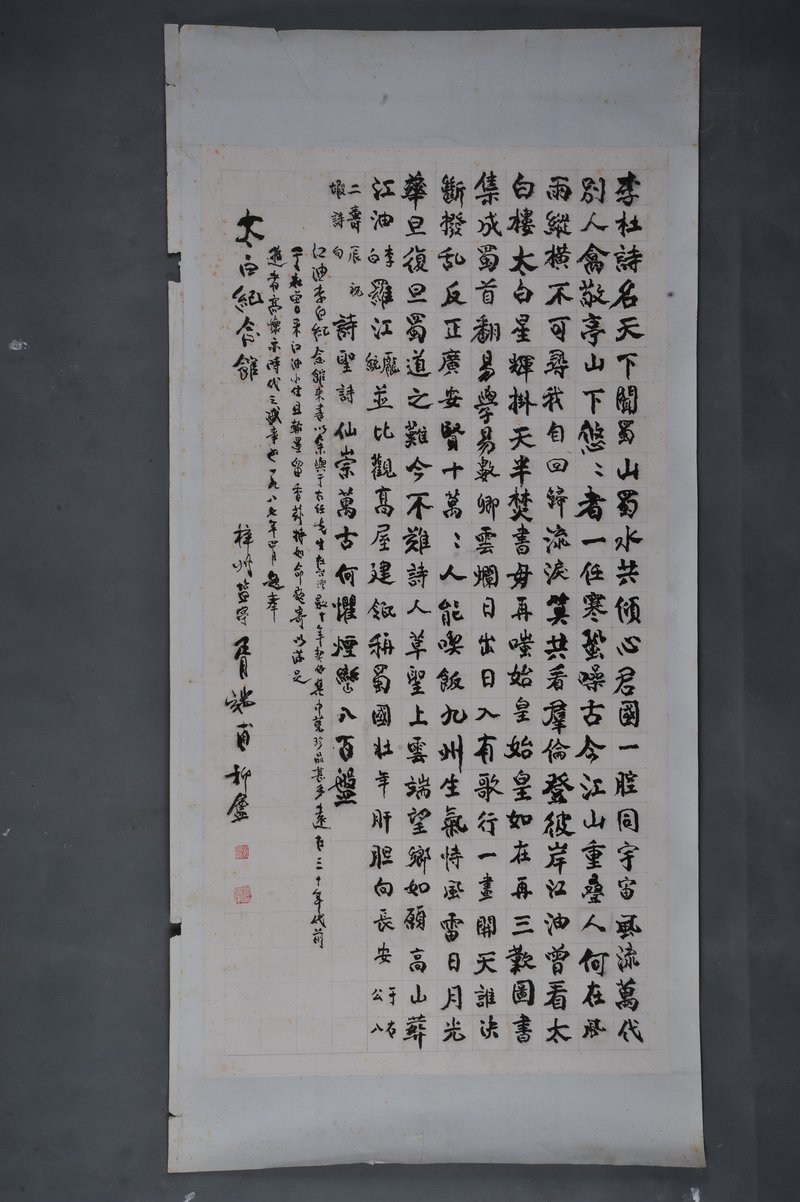 李杜詩名天下聞蜀山蜀水共傾心君國一腔同宇宙風流萬代
別人禽敬亭山下悠〻者一任寒蛩噪古今江山重疊人何在風
雨縱橫不可尋我自回歸流淚笑共看羣倫登彼岸江油曾看太
白樓太白星輝掛天半焚書毋再嗤始皇始皇如在再三歎圖書
集成蜀首翻易學易數卿雲爛日出日入有歌行一畫開天誰決
斷撥乱反正廣安賢十萬〻人能喫飯九州生氣恃風雷日月光
華旦復旦蜀道之難今不難詩人草聖上雲端望鄉如願高山葬
江油李白羅江龐統並比觀高屋建瓴稱蜀國壯年肝胆向長安于右公八
二壽辰祝嘏詩句詩聖詩仙崇萬古何懼煙巒八百盤
江油李白紀念館來書以余與于右任先生在台灣數十年契好集中萬珍品甚多遠在三十年代前
于右曾來江油小住且翰墨留香於梓如命題寄以滿足
遊者高懷亦時代之盛事也一九八七年四月題奉
太白紀念館
梓州鹽亭胥端甫